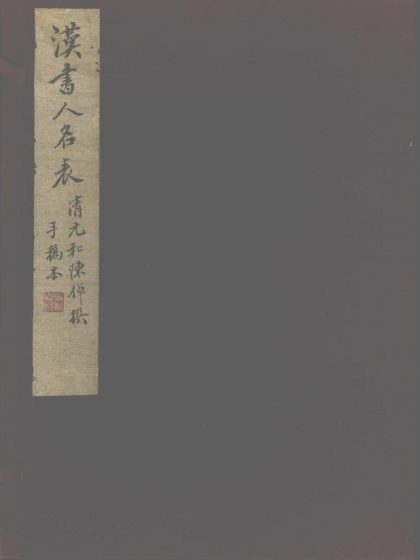 漢書人名表
清元和陳倬撰
手稿本